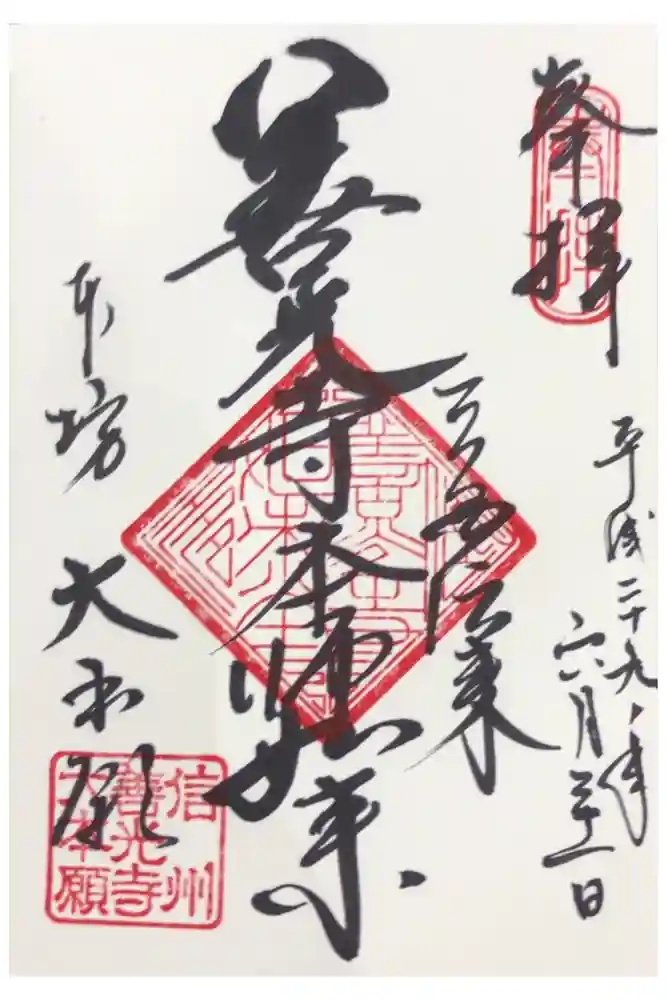 奉拝
奉拝
平成二十九年
六月二十一日
三国伝来
善光寺本師如来
本坊 大本願
信州
善光寺
大本願